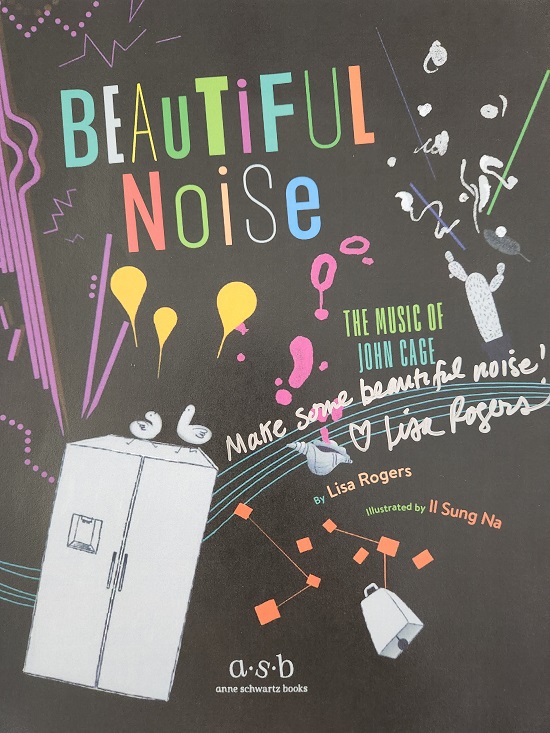 BEAUTiFUL
NOiSE
THE MUSIC OF
JOHN CAGE
Make some beautiful noise!
♡ Lisa Rogers
By Lisa Rogers
Illustrated by Il Sung Na
a·s·b
anne schwartz books